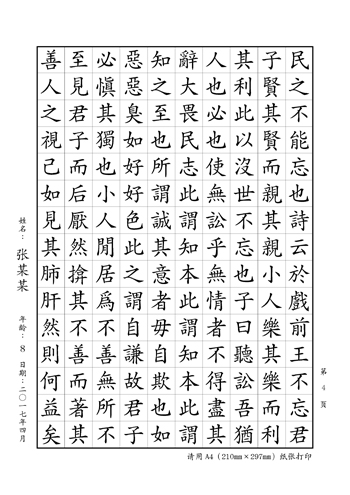 民之不能忘也詩云於戲前王不忘君
子賢其賢而親其親小人樂其樂而利
其利此以沒世不忘也子曰聽訟吾猶
人也必也使無訟乎無情者不得盡其
辭大畏民志此謂知本此謂知本此謂
知之至也所謂誠其意者毋自欺也如
惡惡臭如好好色此之謂自謙故君子
必愼其獨也小人閒居爲不善無所不
至見君子而后厭然揜其不善而著其
善人之視己如見其肺肝然則何益矣
姓名：张某某 年龄：8 日期：二〇一七年四月
第 4 页
请用 A4（210mm×297mm）纸张打印